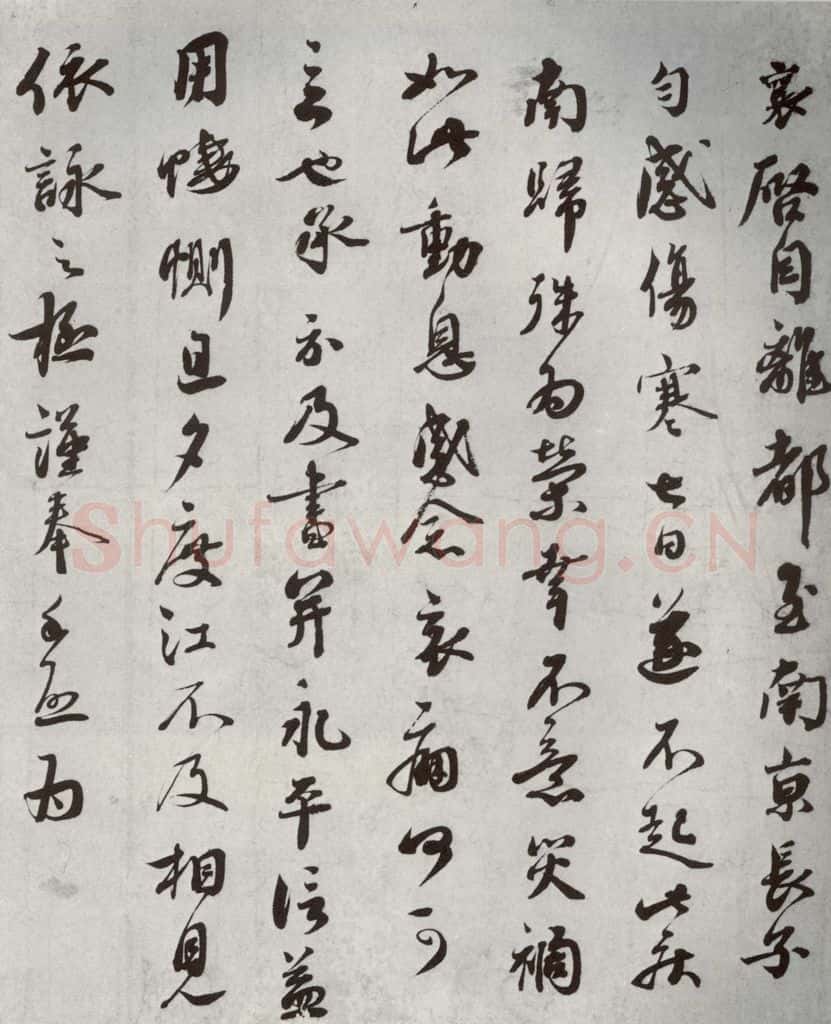 襄啓自離都至南京長子
勻感傷寒七日遂不起此疾
南歸殊爲榮幸不意災禍
如此動息感念哀痛何可
言也承示及書并永平信益
用悽惻旦夕度江不及相見
依詠之極謹奉手啓爲
Shufawang.CN